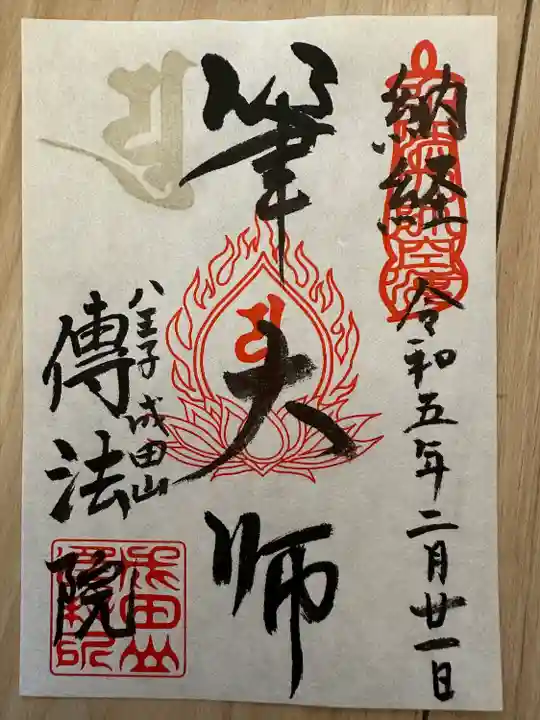 納経
令和五年二月廿一日
筆大師
八王子成田山
傳法院
成田山